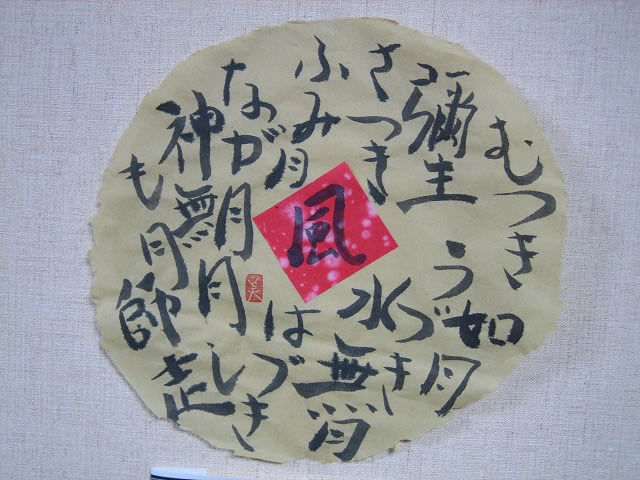 むつき如月
彌生うづき
さつき水無月
ふみ月
風
はづき
なが月
神無月し
も月師走
美